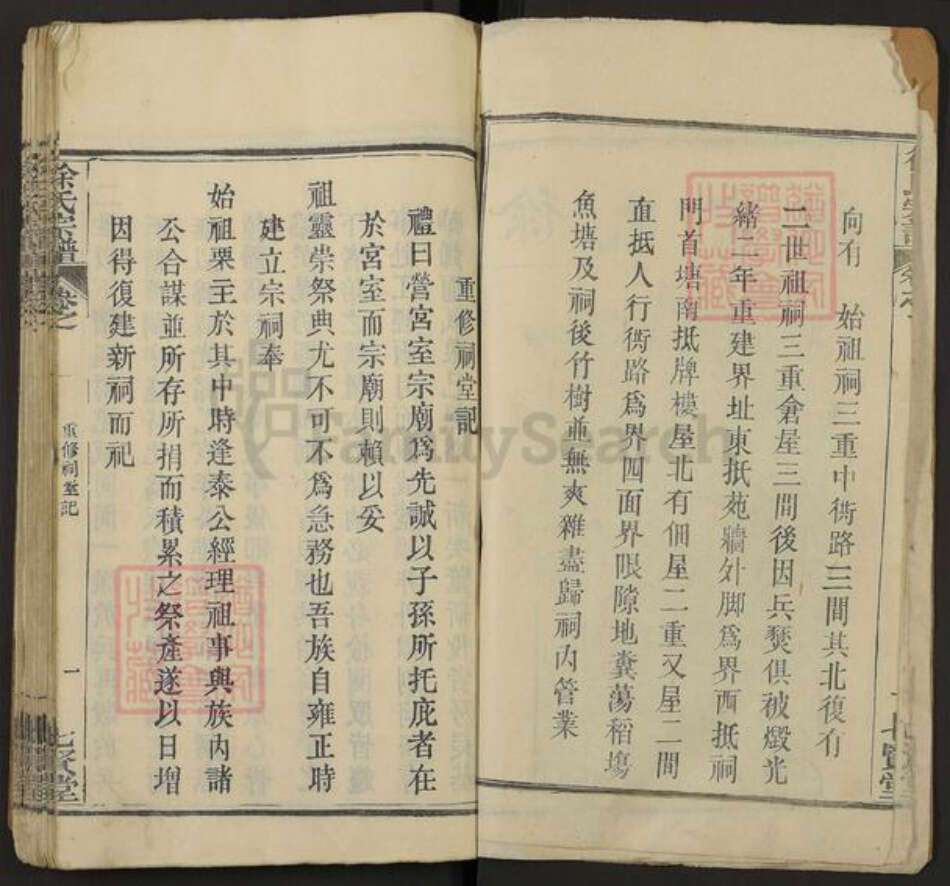 向有 始祖祠三重中衖路三間其北復有
二世祖祠三重倉屋三間後因兵燹俱被燬光
緒二年重建界址東抵苑牆外脚爲界西抵祠
門首塘南抵牌樓屋北有佃屋二重又屋二間
直抵人行衖路爲界四面界限隙地糞蕩稻塲
魚塘及祠後竹樹並無爽雜盡歸祠內管業
七賢堂
重修祠堂記
禮曰營宮室宗廟爲先誠以子孫所托庇者在
於宮室而宗廟則賴以妥
祖靈崇祭典尤不可不爲急務也吾族自雍正時
建立宗祠奉
始祖栗主於其中時逢泰公經理祖事與族內諸
公合謀並所存所捐而積累之祭產遂以日增
因得復建新祠而祀
徐氏宗譜
卷之
重修祠堂記
一
七賢堂
FamilySearch